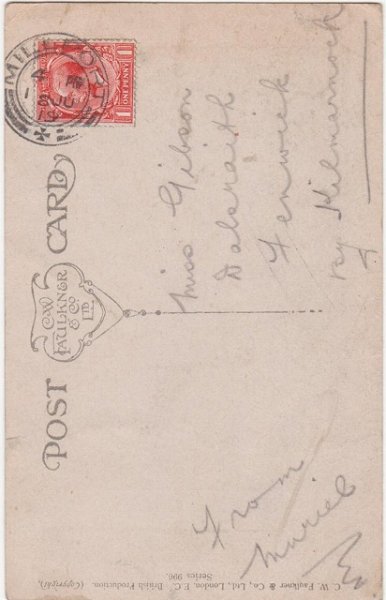 POST CARD
C.W.
FAULKNER
& Co
LTD
MILLPORT
ONE PENNY
Miss Gibson
Fenwick
By Kilmarnock
From
Muriel
C. W. Faulkner & Co., Ltd., London, E.C. British Production. (Copyright).
Series 996